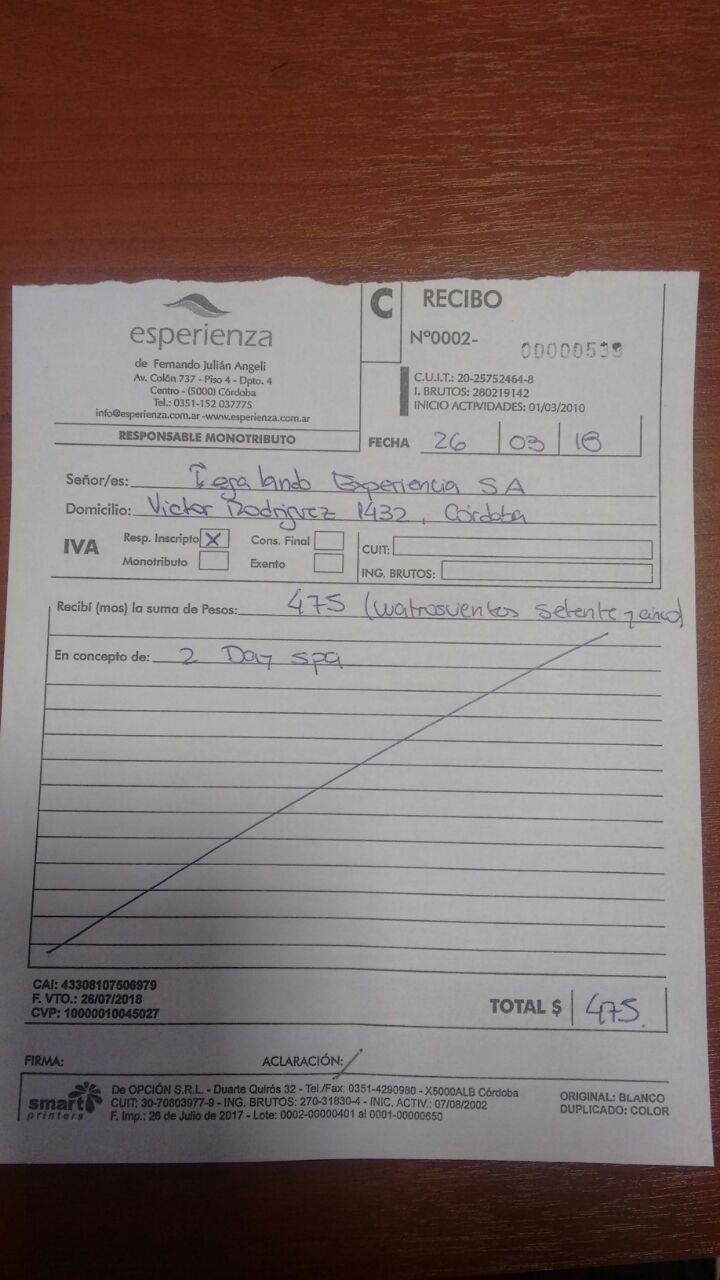 esperienza
de Fernando Julián Angeli
Av. Colón 737 - Piso 4 - Dpto. 4
Centro - (5000) Córdoba
Tel.: 0351-152 037775
info@esperienza.com.ar -www.esperienza.com.ar
RESPONSABLE MONOTRIBUTO
C
RECIBO
Nº0002- 00000539
C.U.I.T.: 20-25752464-8
I. BRUTOS: 280219142
INICIO ACTIVIDADES: 01/03/2010
FECHA 26 03 18
Señor/es: Regalando Experiencia SA
Domicilio: Victor Rodriguez 1432, Córdoba
IVA
Resp. Inscripto X Cons. Final
Monotributo Exento
CUIT:
ING. BRUTOS:
Recibí (mos) la suma de Pesos: 475 (cuatrosientos setente y cinco)
En concepto de: 2 Day spa
CAI: 43308107506979
F. VTO.: 26/07/2018
CVP: 10000010045027
TOTAL $ 475.
FIRMA: ACLARACIÓN:
smart printers
De OPCIÓN S.R.L. - Duarte Quirós 32 - Tel./Fax: 0351-4290980 - X5000ALB Córdoba
CUIT: 30-70803977-9 - ING. BRUTOS: 270-31830-4 - INIC. ACTIV.: 07/08/2002
F. Imp.: 26 de Julio de 2017 - Lote: 0002-00000401 al 0001-00000650
ORIGINAL: BLANCO
DUPLICADO: COLOR